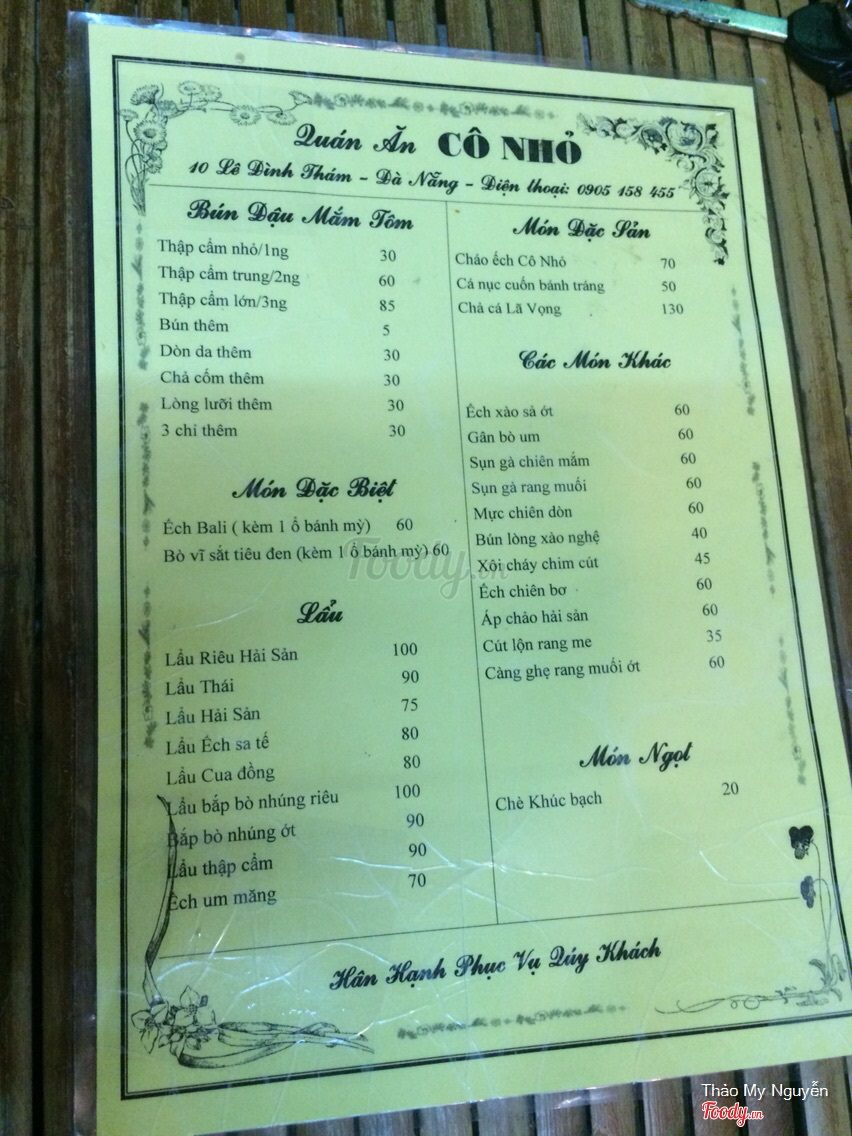 Quán Ăn CÔ NHỎ
10 Lê Đình Thám - Đà Nẵng - Điện thoại: 0905 158 455
Bún Đậu Mắm Tôm
Thập cẩm nhỏ/1ng 30
Thập cẩm trung/2ng 60
Thập cẩm lớn/3ng 85
Bún thêm 5
Dòn da thêm 30
Chả cốm thêm 30
Lòng lưỡi thêm 30
3 chỉ thêm 30
Món Đặc Biệt
Ếch Bali ( kèm 1 ổ bánh mỳ) 60
Bò vĩ sắt tiêu đen (kèm 1 ổ bánh mỳ) 60
Lẩu
Lẩu Riêu Hải Sản 100
Lẩu Thái 90
Lẩu Hải Sản 75
Lẩu Ếch sa tế 80
Lẩu Cua đồng 80
Lẩu bắp bò nhúng riêu 100
Bắp bò nhúng ớt 90
Lẩu thập cẩm 90
Ếch um măng 70
Món Đặc Sản
Cháo ếch Cô Nhỏ 70
Cá nục cuốn bánh tráng 50
Chả cá Lã Vọng 130
Các Món Khác
Ếch xào sả ớt 60
Gân bò um 60
Sụn gà chiên mắm 60
Sụn gà rang muối 60
Mực chiên dòn 60
Bún lòng xào nghệ 40
Xôi cháy chim cút 45
Ếch chiên bơ 60
Áp chảo hải sản 60
Cút lộn rang me 35
Càng ghẹ rang muối ớt 60
Món Ngọt
Chè Khúc bạch 20
Hân Hạnh Phục Vụ Qúy Khách
Foody.vn
Thảo My Nguyễn
Foody.vn